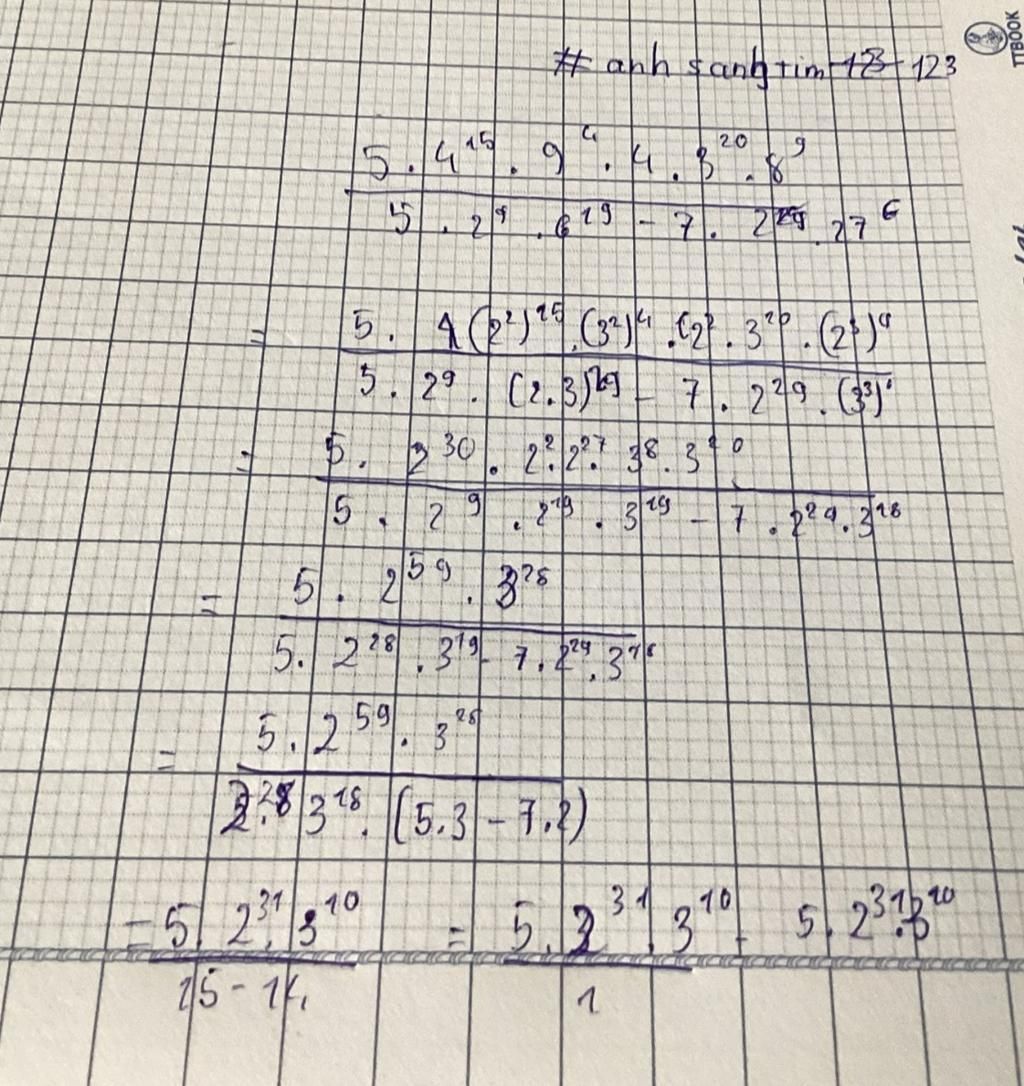 TTBOOK
# anh sang tim 123
5 . 4¹⁵ . 9⁴ . 4 . 3²⁰ . 8⁹
5 . 2⁹ . 6¹⁹ - 7 . 2²⁹ . 27⁶
= 5 . (2²)¹⁵ . (3²)⁴ . (2² . 3²⁰ . (2³)⁹
5 . 2⁹ . (2.3)¹⁹ - 7 . 2²⁹ . (3³)⁶
= 5 . 2³⁰ . 2² . 2²⁷ . 3⁸ . 3²⁰
5 . 2⁹ . 2¹⁹ . 3¹⁹ - 7 . 2²⁹ . 3¹⁸
= 5 . 2⁵⁹ . 3²⁸
5 . 2²⁸ . 3¹⁹ - 7 . 2²⁹ . 3¹⁸
= 5 . 2⁵⁹ . 3²⁸
2²⁸ . 3¹⁸ . (5.3 - 7.2)
= 5 . 2³¹ . 3¹⁰ = 5 . 2³¹ . 3¹⁰ = 5 . 2³¹ . 3¹⁰
15 - 14 1